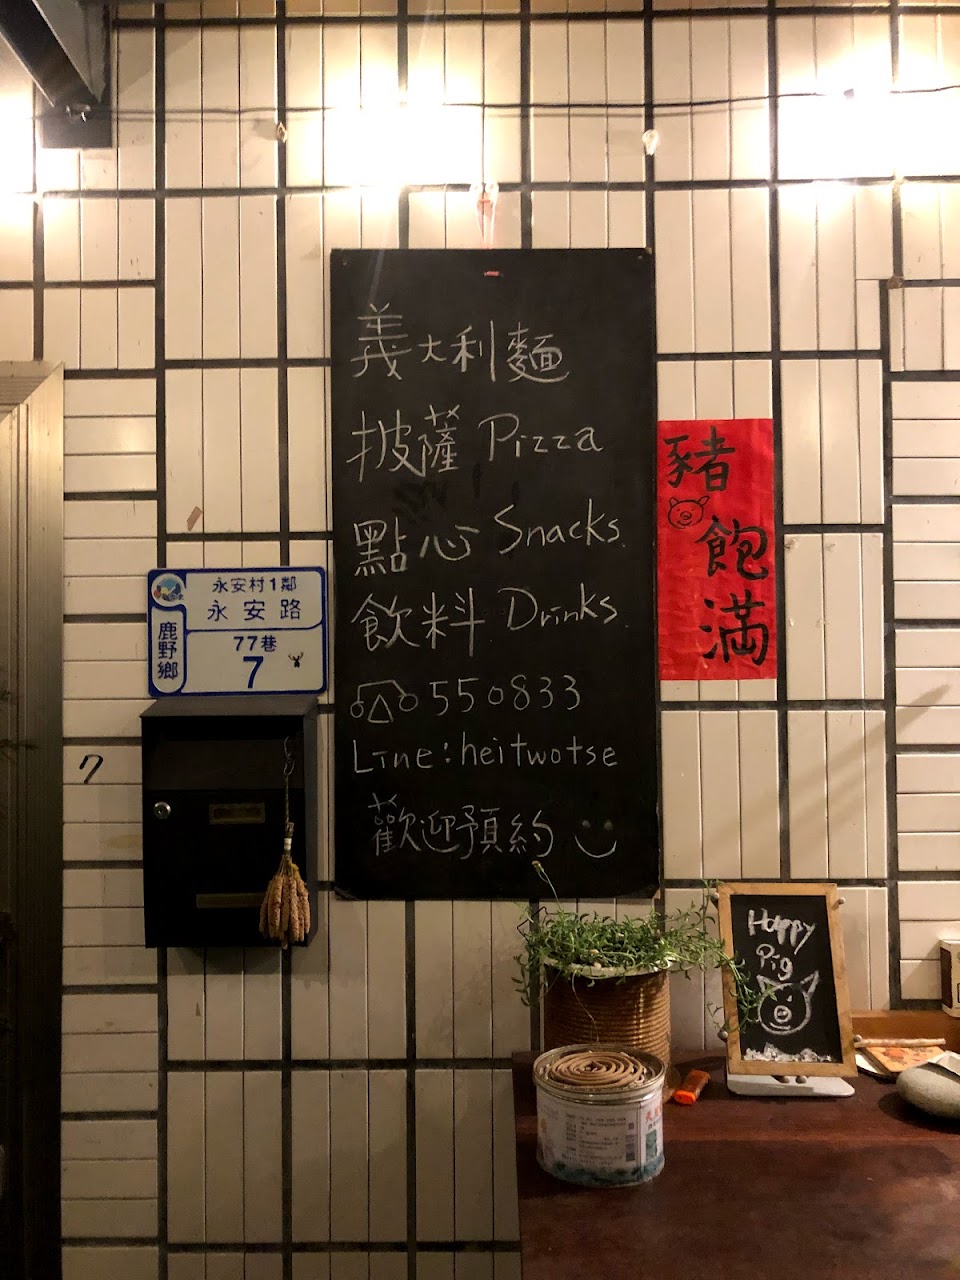 義大利麵
披薩 Pizza
點心 Snacks
飲料 Drinks
550833
Line:heitwotse
歡迎預約
豬
飽
滿
永安村1鄰
永安路
77巷
7
鹿野鄉
7
Happy
Pig